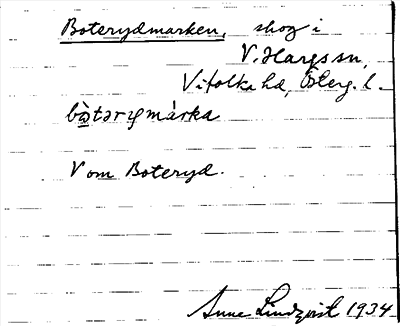 Boterydmarken, skog i
V. Hargs sn,
Vifolka hd, Österg. l.
bòtərymárka
V om Boteryd.
Anne Lindqvist 1934